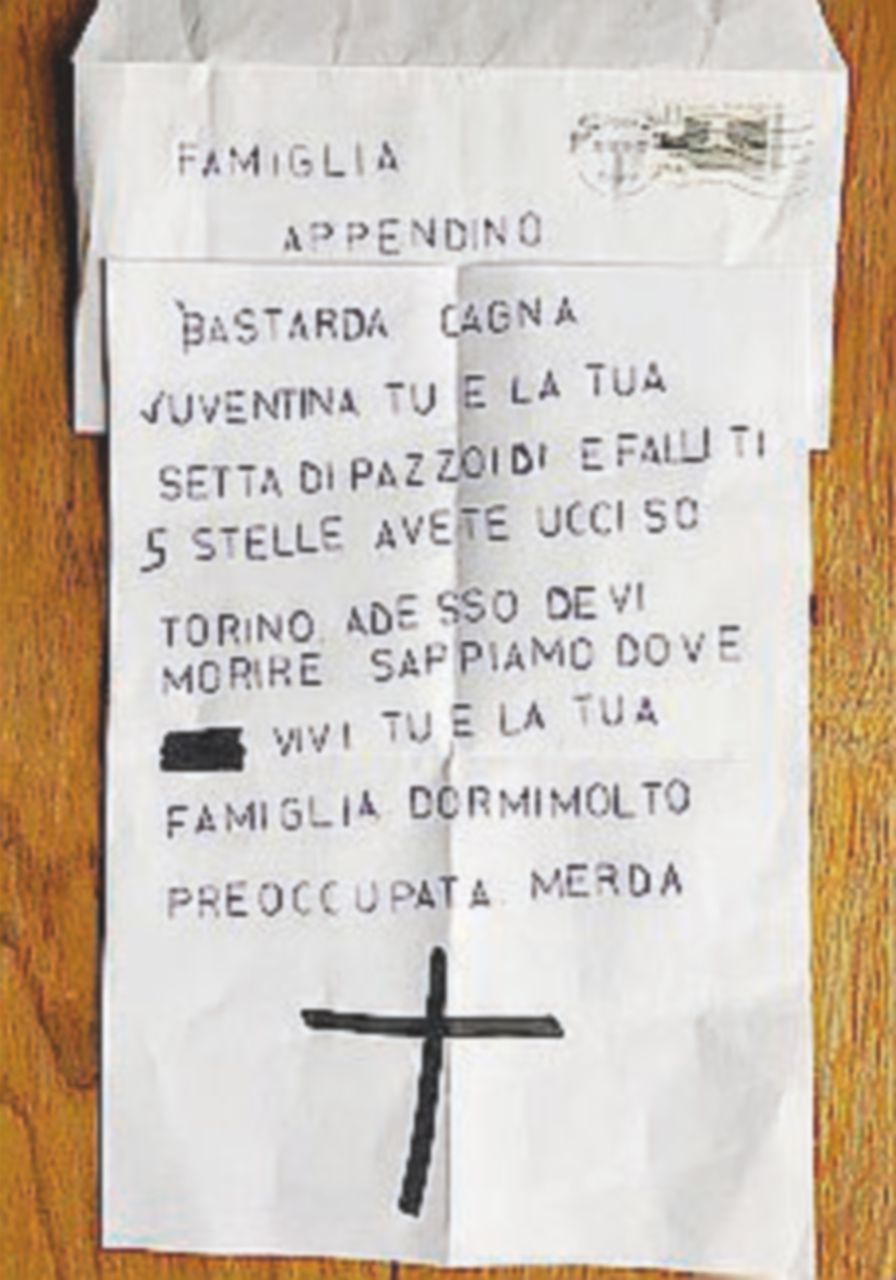 FAMIGLIA
APPENDINO
BASTARDA CAGNA
JUVENTINA TU E LA TUA
SETTA DI PAZZOIDI E FALLITI
5 STELLE AVETE UCCISO
TORINO. ADESSO DEVI
MORIRE SAPPIAMO DOVE
VIVI TU E LA TUA
FAMIGLIA DORMI MOLTO
PREOCCUPATA. MERDA